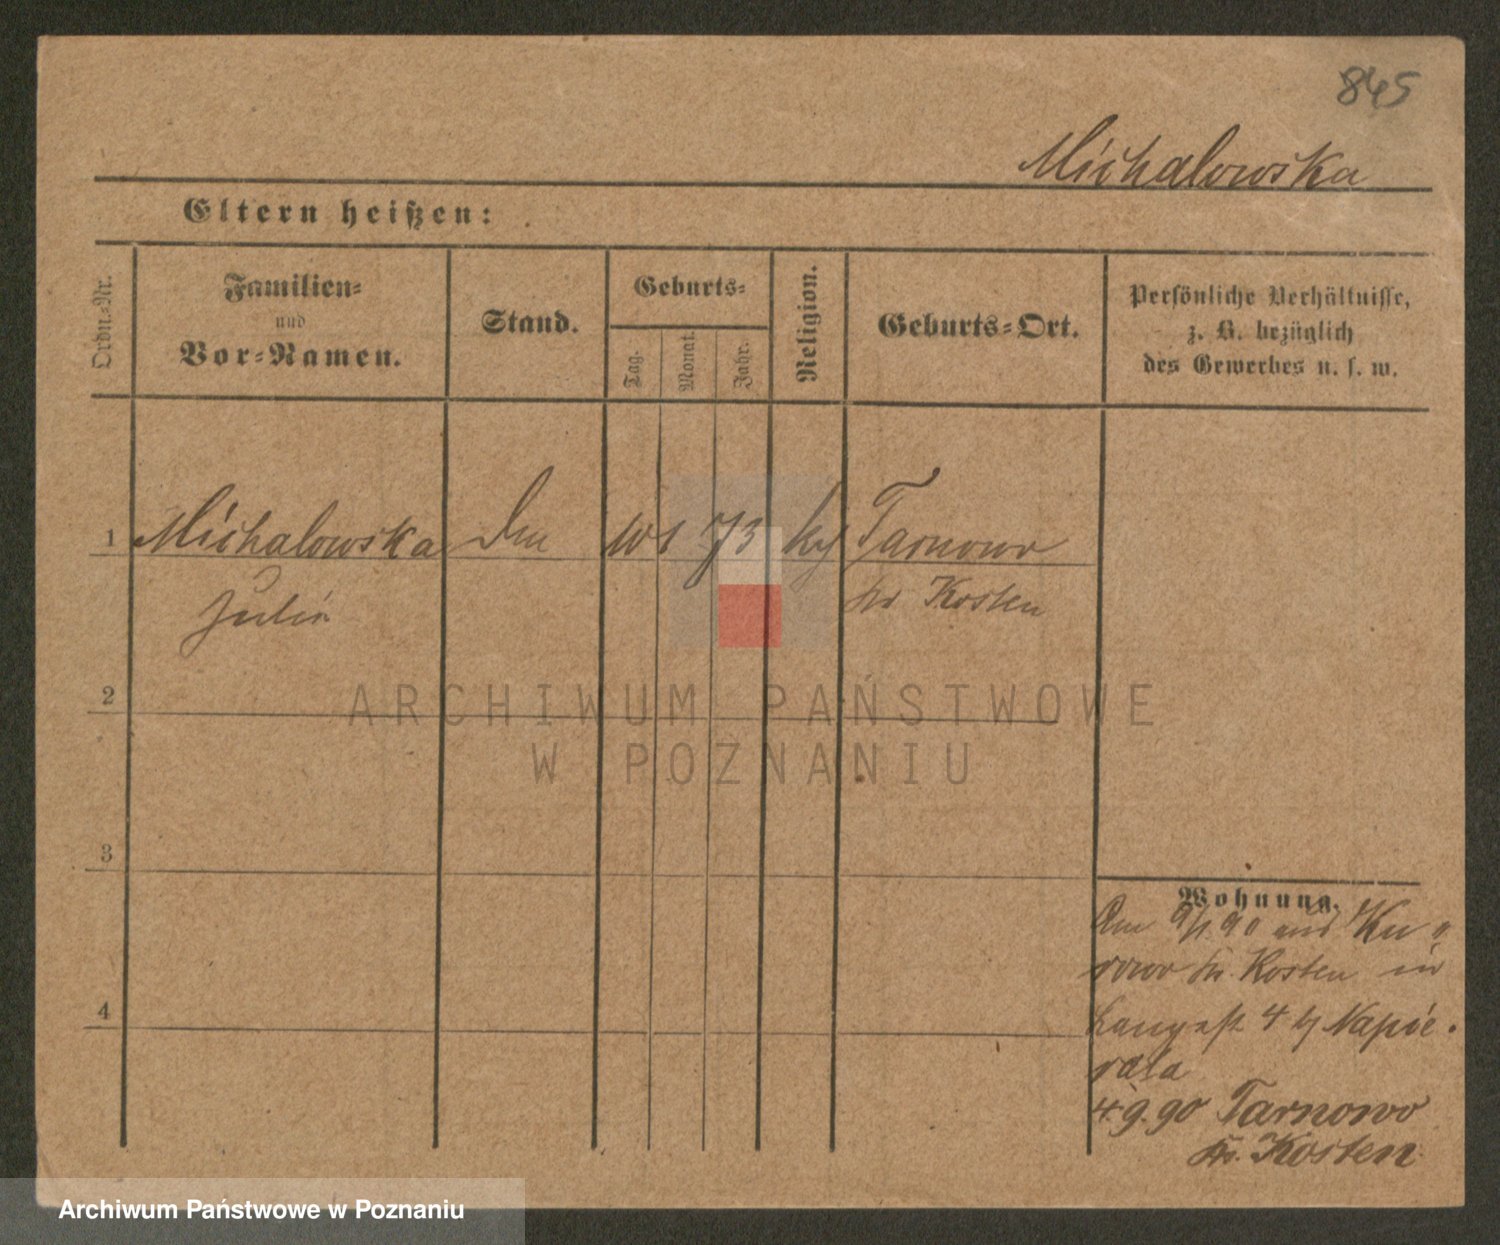 845
Michalowska
Eltern heißen:
Ordn.-Nr.
Familien-
und
Vor-Namen.
Stand.
Geburts-
Tag.
Monat.
Jahr.
Religion.
Geburts-Ort.
Persönliche Verhältnisse,
z. B. bezüglich
des Gewerbes u. s. w.
1 Michalowska 73 Tarnowo
Kosten
2
3
4
Wohnung.
Am 9/1. 90 aus Ku-
rowo Kr. Kosten in
4 Napie-
rala
4.9.90 Tarnowo
Kr. Kosten
ARCHIWUM PAŃSTWOWE
W POZNANIU
Archiwum Państwowe w Poznaniu